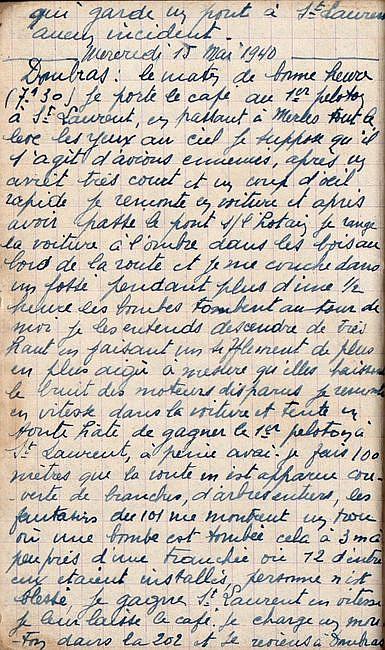 qui garde un pont à St Laurent
aucun incident.
Mercredi 15 Mai 1940
Dombras : le matin de bonne heure
(7h30) je porte le café au 1er peloton
à St Laurent, en passant à Merles tout le
les yeux au ciel je suppose qu'il
s'agit d'avions ennemis, après un
arrêt très court et un coup d'œil
rapide je remonte en voiture et après
avoir passé le pont s/l'Lotain je range
la voiture à l'ombre dans les bois au
bord de la route et je me couche dans
un fossé pendant plus d'une 1/2
heure les bombes tombent autour de
moi je les entends descendre de très
haut en faisant un sifflement de plus
en plus aigu à mesure qu'elles baissent
le bruit des moteurs disparus je remonte
en vitesse dans la voiture et tente en
toute hâte de gagner le 1er peloton à
St Laurent, à peine avai- je fais 100
mètres que la route m'est apparue cou-
verte de branches, d'arbres entiers, les
fantassins du 101 me montrent un trou
où une bombe est tombée cela à 3 m à
peu près d'une tranchée où 12 d'entre
eux étaient installés, personne n'est
blessé je gagne St Laurent en vitesse
je leur laisse le café, je charge un mou-
ton dans la 202 et je reviens à Dombras